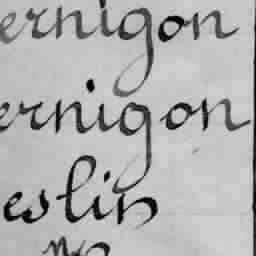 ernigon
ernigon
eslin